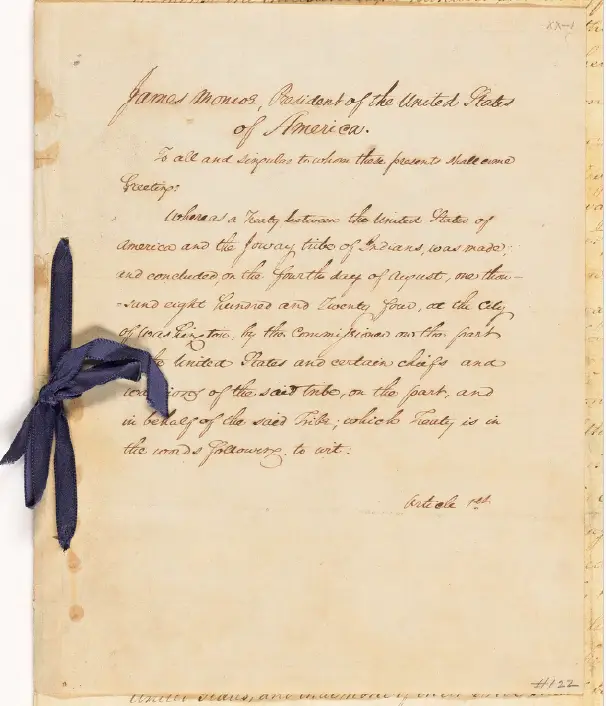 XX-1
James Monroe, President of the United States
of America.
To all and singular to whom these presents shall come
Greeting:
Whereas a Treaty between the United States of
America and the Ioway tribe of Indians, was made,
and concluded, on the fourth day of August, one thou-
-sand eight hundred and Twenty four, at the City
of Washington, by the Commissioner on the part
United States and certain chiefs and
of the said tribe, on the part, and
in behalf of the said Tribe; which Treaty is in
the words following, to wit:
Article 1st.
#122